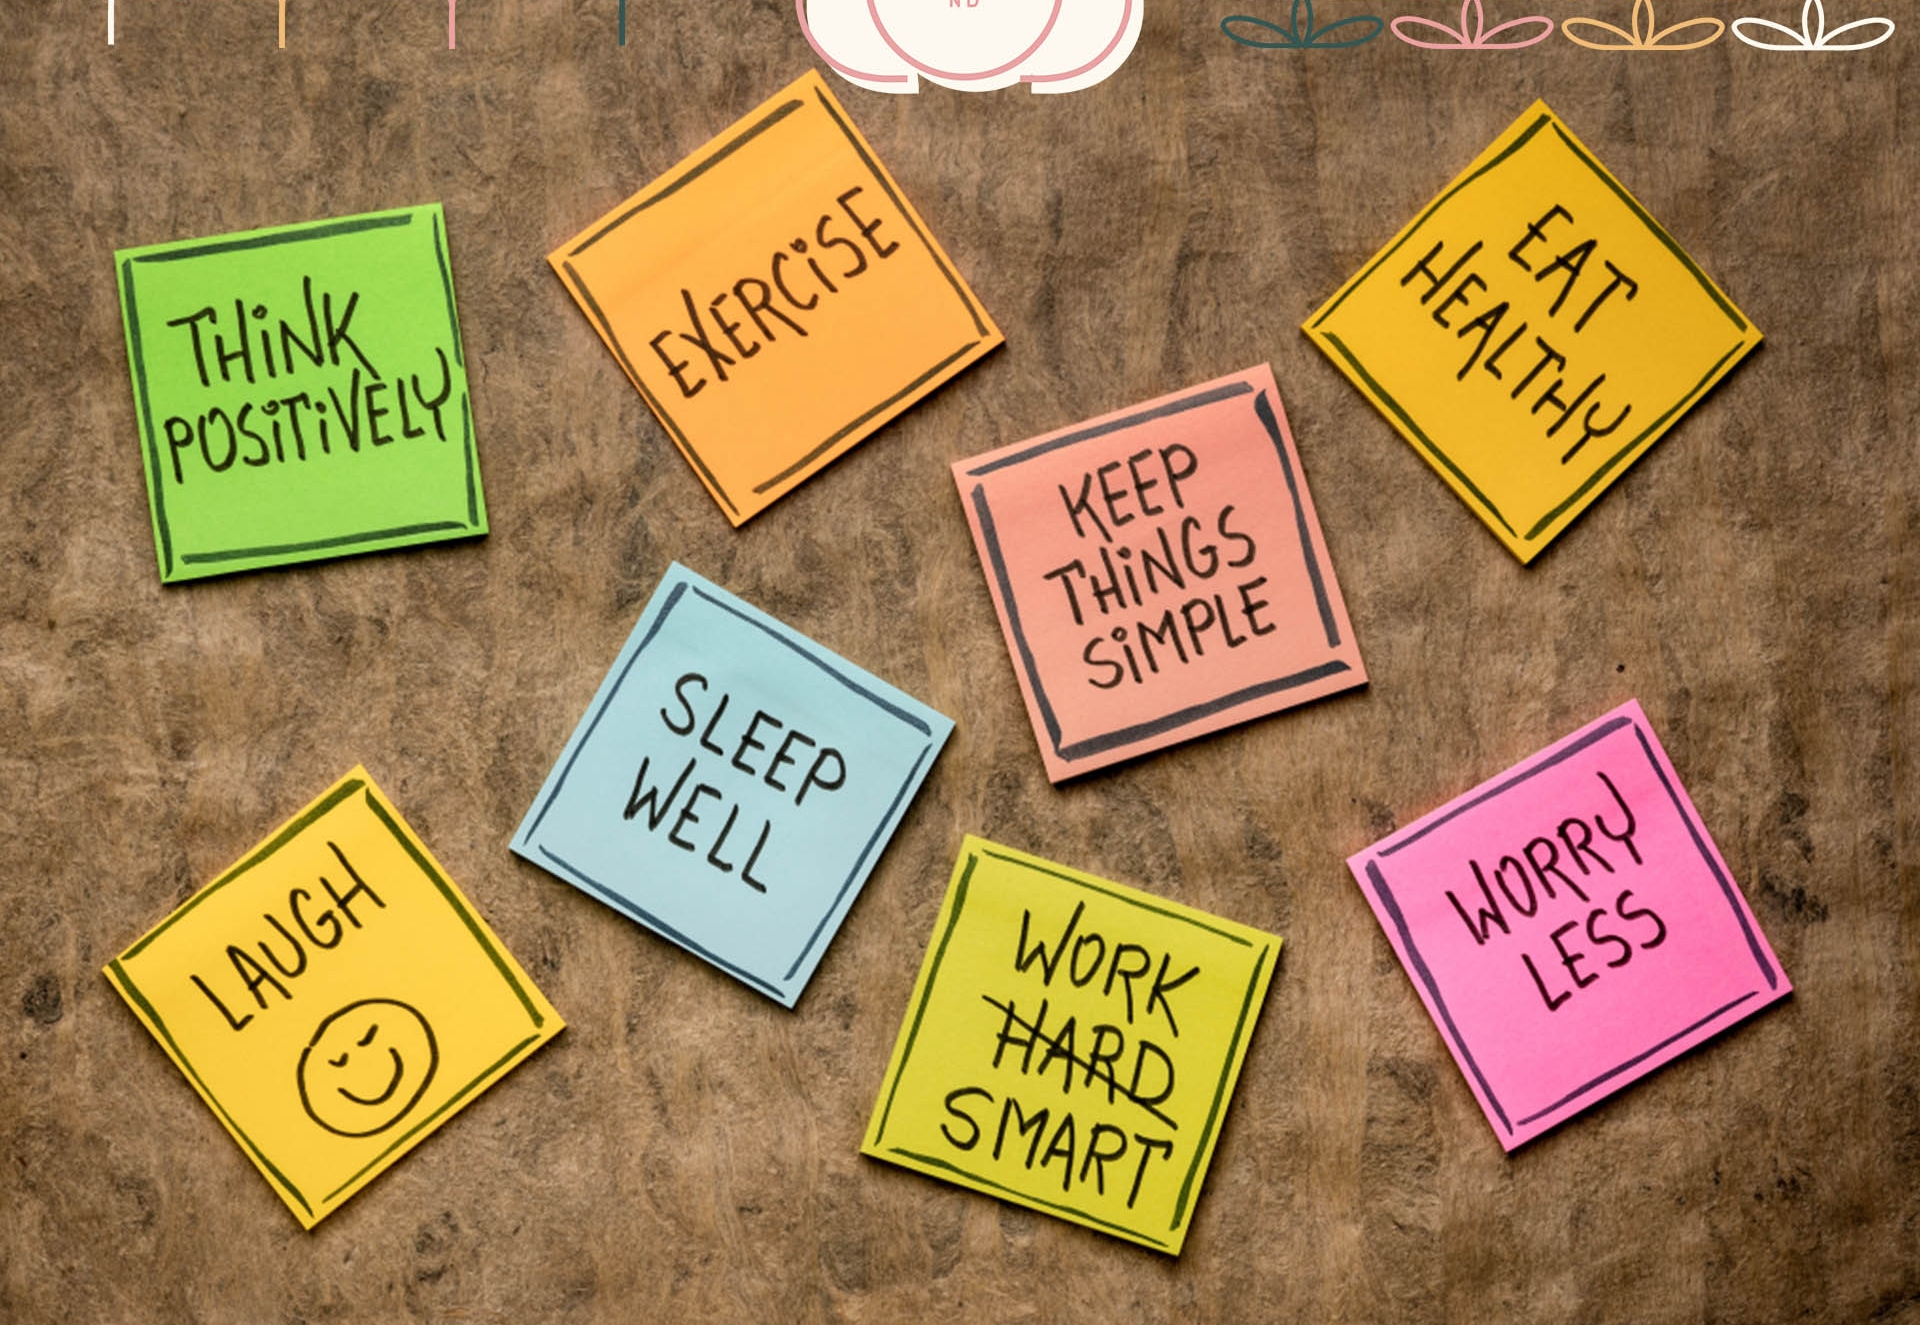 ND
THiNK
POSiTiVELY
EXERCiSE
EAT
HEALTHY
KEEP
THiNGS
SiMPLE
SLEEP
WELL
LAUGH
WORK
HARD
SMART
WORRY
LESS